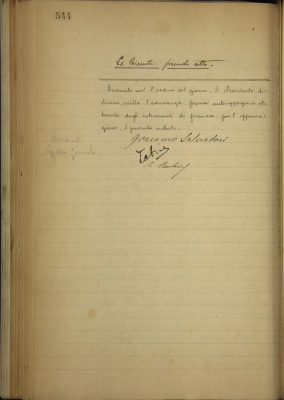 544
La Giunta prende atto. -
Esaurito così l'ordine del giorno, il Presidente di-
chiara sciolta l'adunanza, previa autorizzazione ot-
tenuta dagli intervenuti di firmare, per l'approva-
zione, il presente verbale.
Giacomo Salvadori